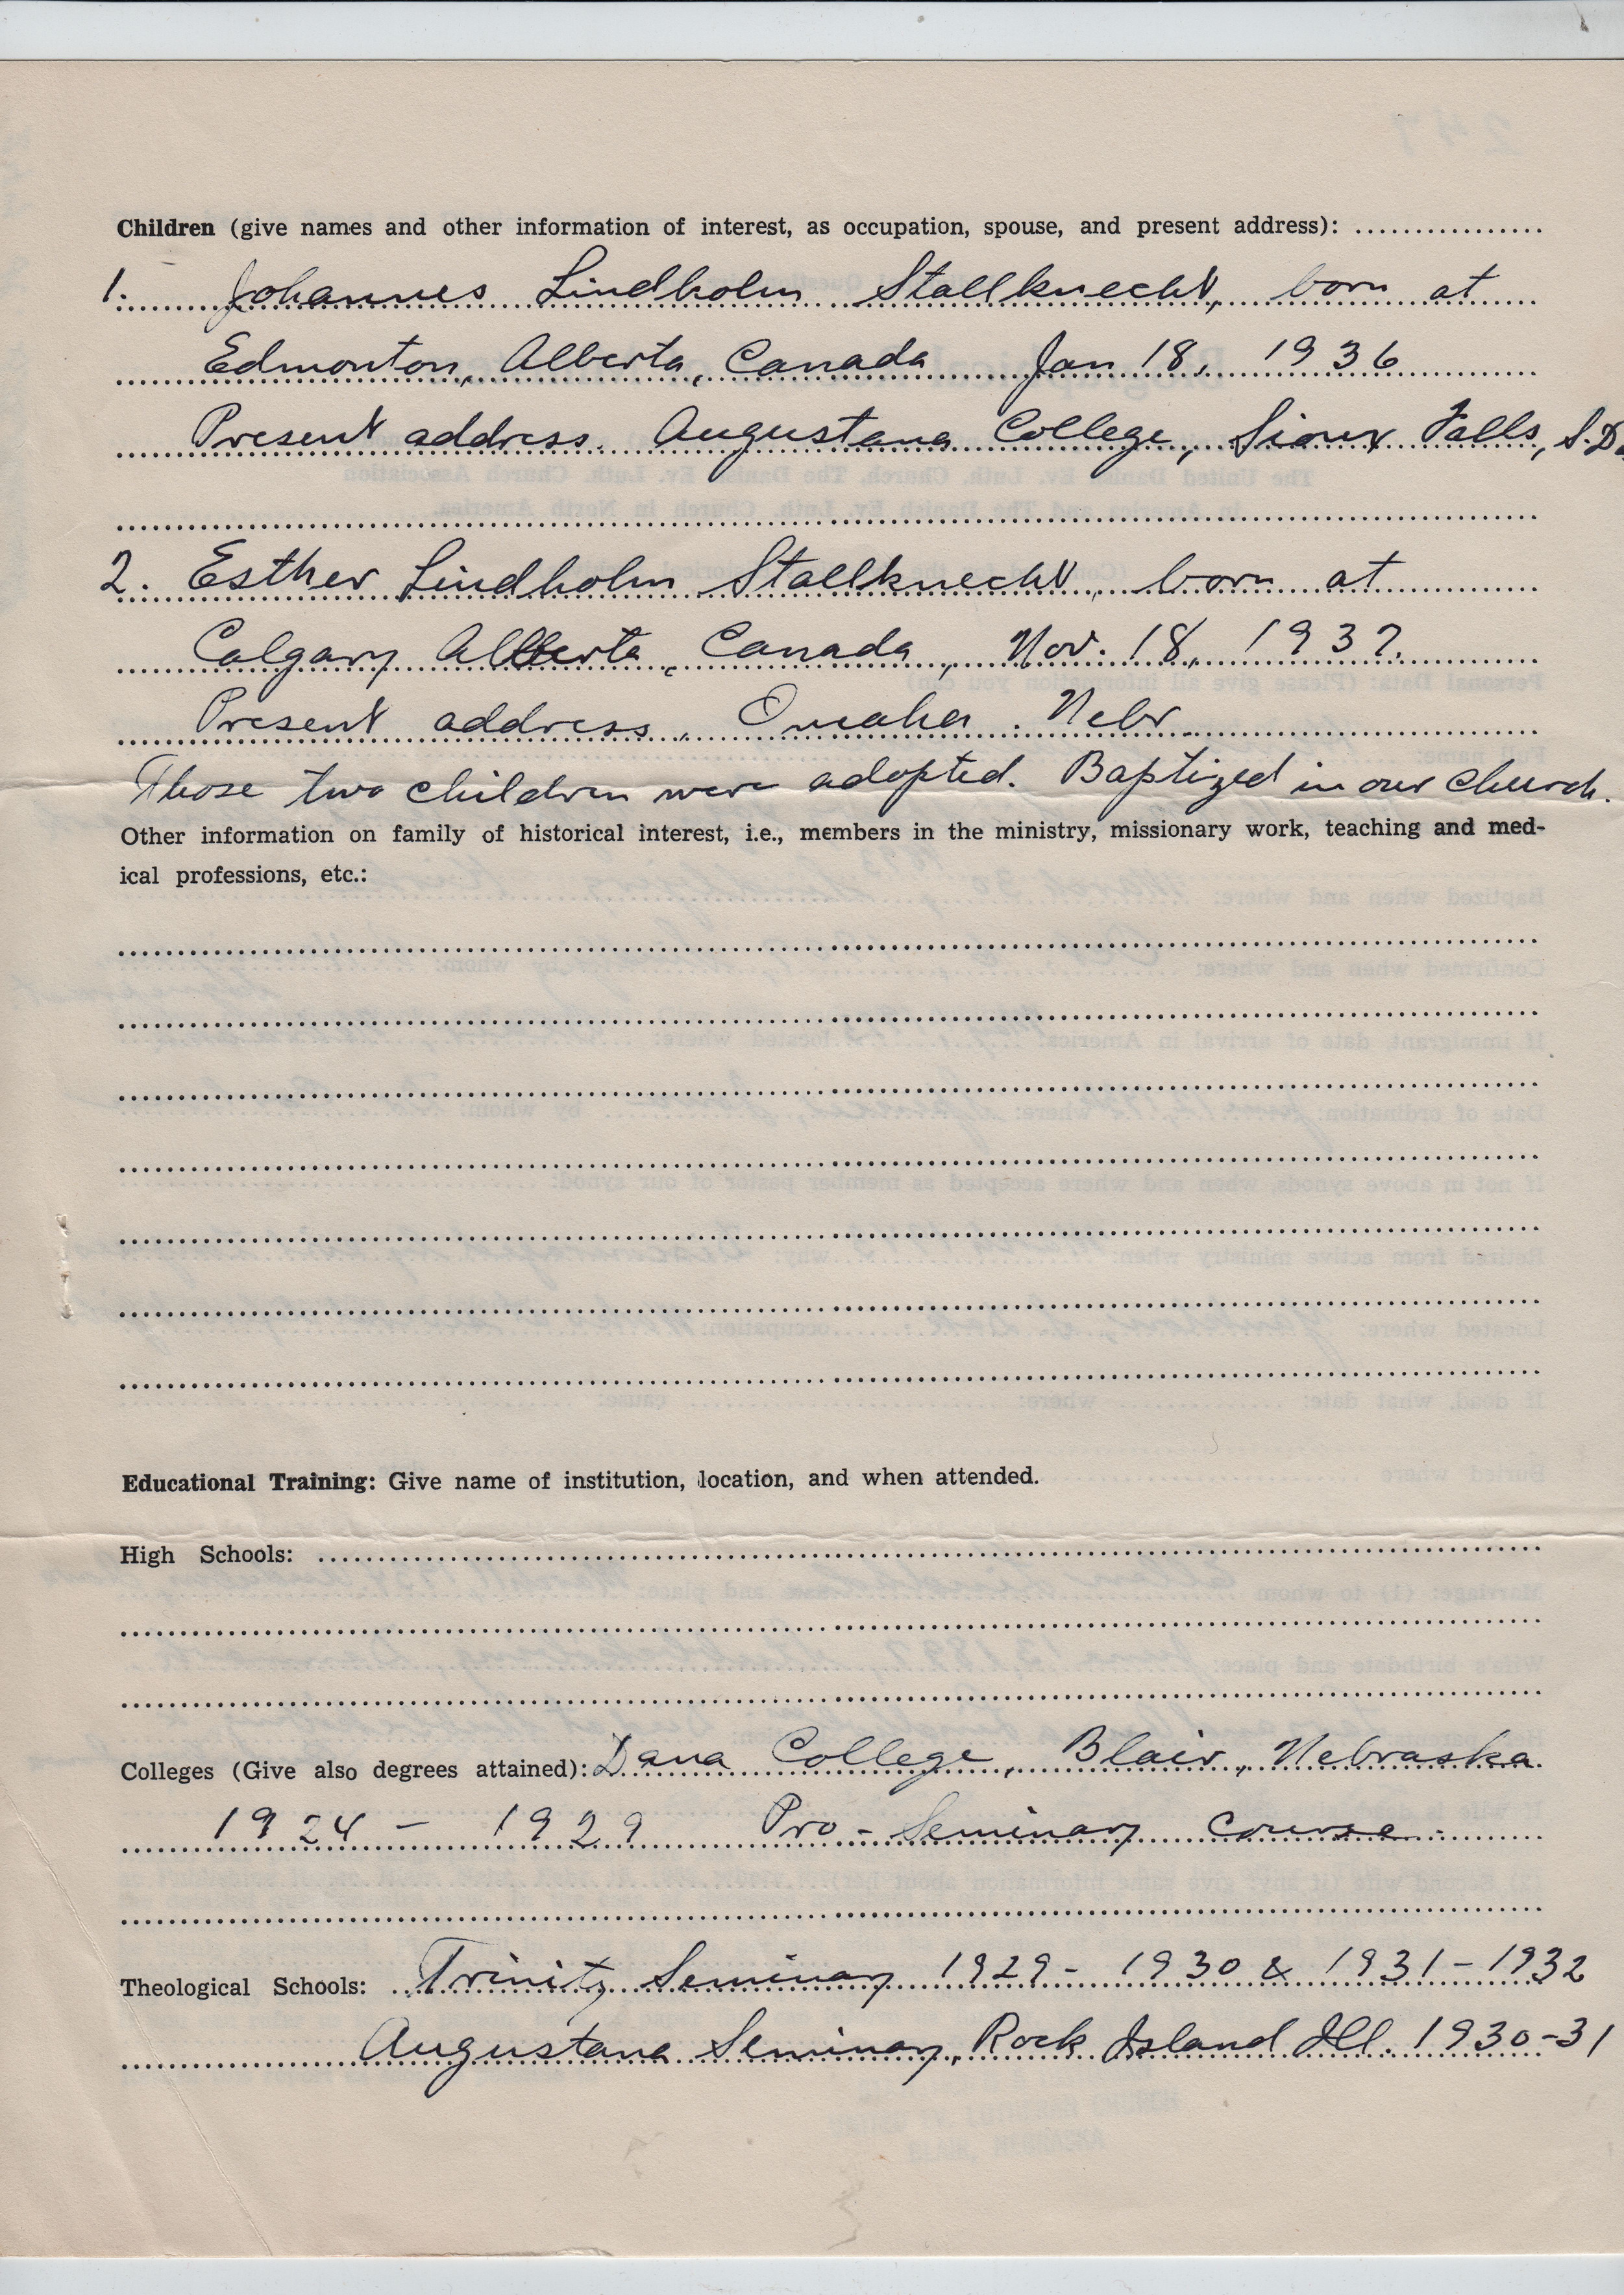 Children (give names and other information of interest, as occupation, spouse, and present address):
1. Johannes Lindholm Stallknecht, born at
Edmonton, Alberta, Canada Jan 18, 1936
Present address. Augustana College, Sioux Falls, S.D.
2. Esther Lindholm Stallknecht, born at
Calgary Alberta, Canada, Nov. 18, 1937.
Present address, Omaha. Nebr
Those two children were adopted. Baptized in our church.
Other information on family of historical interest, i.e., members in the ministry, missionary work, teaching and med-
ical professions, etc.:
Educational Training: Give name of institution, location, and when attended.
High Schools:
Colleges (Give also degrees attained): Dana College, Blair, Nebraska.
1924 - 1929 Pro-Seminary course.
Theological Schools: Trinity Seminary 1929-1930 & 1931-1932
Augustana Seminary, Rock Island Ill. 1930-31